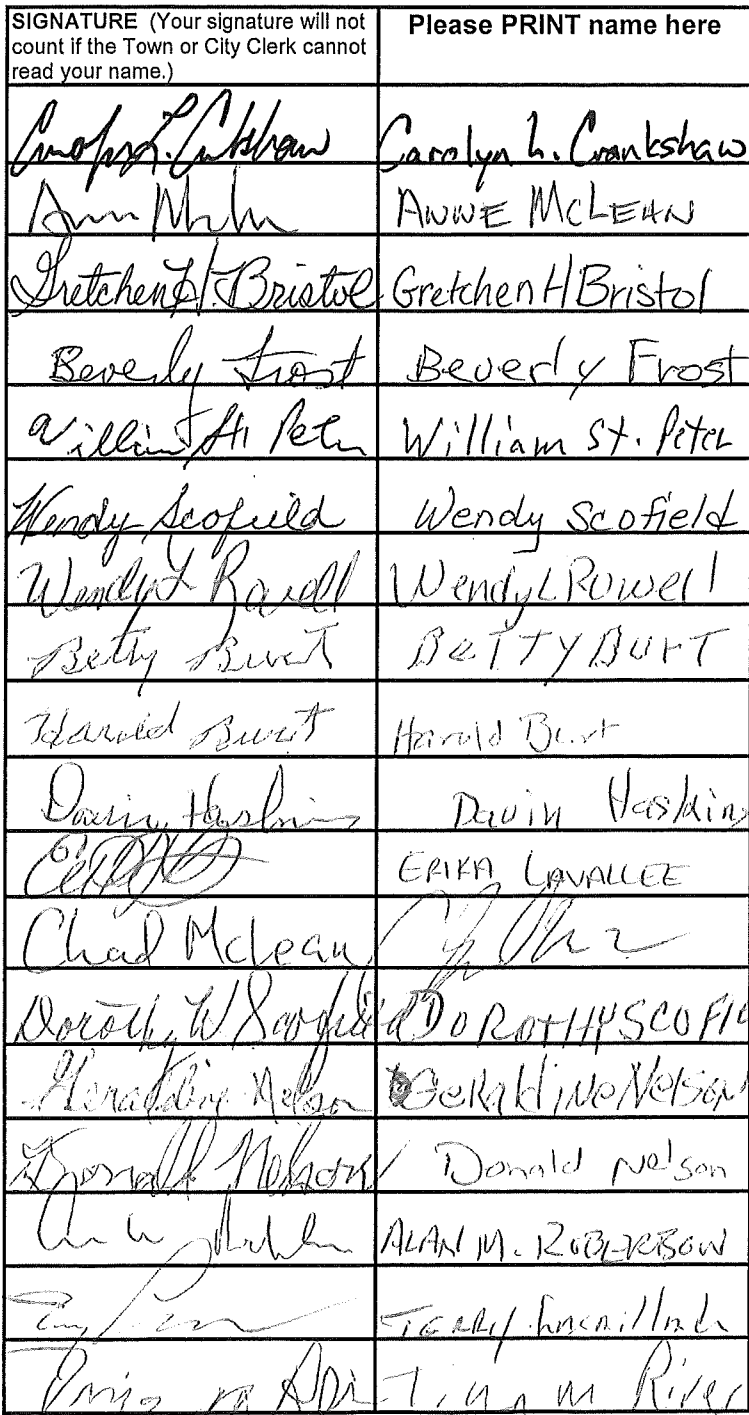 SIGNATURE (Your signature will not
count if the Town or City Clerk cannot
read your name.)
Please PRINT name here
Carolyn L. Crankshaw
ANNE MCLEAN
Gretchen H. Bristol Gretchen H Bristol
Beverly Frost Beverly Frost
William St. Peter William St. Peter
Wendy Scofield Wendy Scofield
Wendy L Rowell Wendy L Rowell
Betty Burt BETTY BURT
Harold Burt Harold Burt
Haskins Haskins
ERIKA LAVALLEE
Chad McLean
Dorothy W Scofield DOROTHY SCOFI
Geraldine Nelson GeRaldiNe NelsoN
Donald Nelson Donald Nelson
ALAN M. ROBERTSON
TERRY
M River